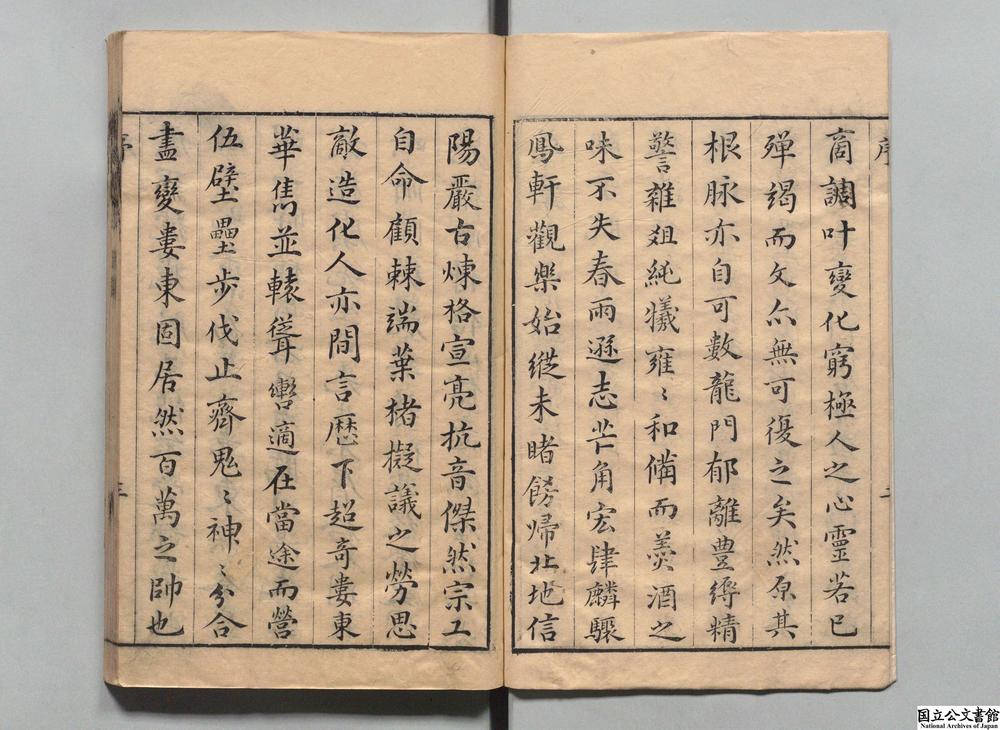 序
二
商調叶變化窮極人之心靈若已
殫竭而文亦無可復之矣然原其
根脉亦自可數龍門郁離豊縟精
警雜俎純犧雍〻和備而羮酒之
味不失春雨遜志芒角宏肆麟驟
鳳軒觀樂始縱未睹歸北地信
陽嚴古煉格宣亮抗音傑然宗工
自命顧棘端葉楮擬議之勞思
敵造化人亦間言歷下超奇婁東
華雋並轅聳轡適在當途而營
伍壁壘步伐止齊鬼〻神〻分合
盡變婁東固居然百萬之帥也
序
三
国立公文書館
National Archives of Japan